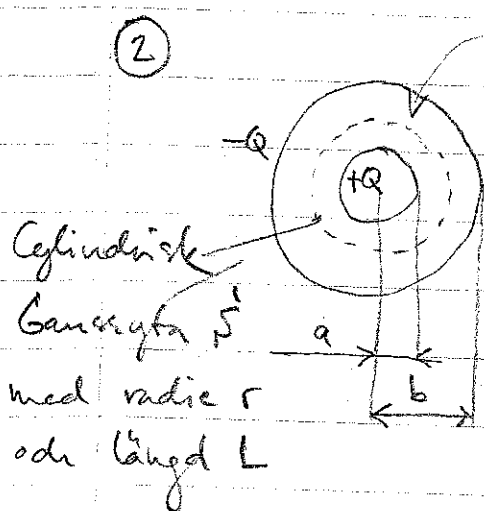 2
-Q
+Q
Cylindrisk
Gaussyta S
med radie r
och längd L
a
b